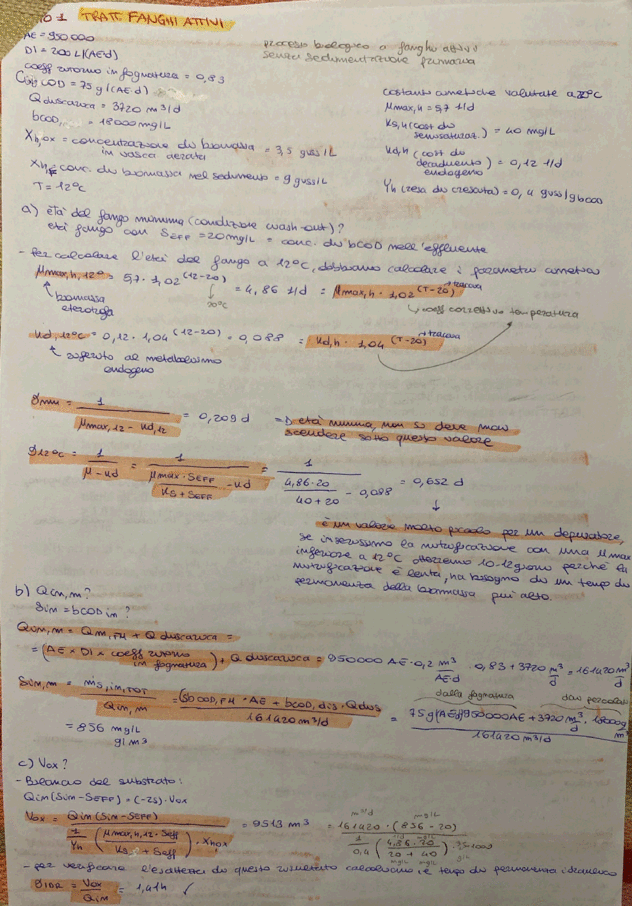 TRATT. FANGHI ATTIVI
AE = 950000
DI = 200 L/(AE·d)
coeff ritorno in fognatura = 0,83
COD = 75 g/(AE·d)
Q discarica = 3720 m³/d
bCOD = 18000 mg/L
Xh,ox = concentrazione di biomassa = 3,5 gVSS/L
in vasca aerata
Xh,r = conc. di biomassa nel sedimento = 9 gVSS/L
T = 12°C
processo biologico a fanghi attivi
senza sedimentazione primaria
costanti cinetiche valutate a 20°C
μmax,h = 5,7 1/d
Ks,h (cost di semisaturaz.) = 40 mg/L
Kd,h (cost di decadimento endogeno) = 0,12 1/d
Yh (resa di crescita) = 0,4 gVSS/gbCOD
a) età del fango minima (condizione wash-out)?
età fango con SEFF = 20 mg/L = conc. di bCOD nell'effluente
- Per calcolare l'età del fango a 12°C, dobbiamo calcolare i parametri cinetici
μmax,h,12° = 5,7 · 1,02^(12-20) = 4,86 1/d = μmax,h · 1,02^(T-20)
biomassa eterotrofa
20°C
coeff correttivo temperatura
Kd,12°C = 0,12 · 1,04^(12-20) = 0,088 = Kd,h · 1,04^(T-20)
riferito al metabolismo
endogeno
θmin = 1 / (μmax,12 - Kd,12) = 0,209 d => età minima, non si deve mai
scendere sotto questo valore
θ12°C = 1 / (μ - Kd) = 1 / (μmax · SEFF / (Ks + SEFF) - Kd) = 1 / (4,86·20 / (40+20) - 0,088) = 0,652 d
è un valore molto piccolo per un depuratore,
se inserissimo la nitrificazione con una μmax
inferiore a 12°C otterremo 10-12 giorni perché la
nitrificazione è lenta, ha bisogno di un tempo di
permanenza della biomassa più alto.
b) Qin,m?
Sin = bCOD in?
Qin,m = Qm,FH + Q discarica =
= (AE x DI x coeff ritorno in fognatura) + Q discarica = 950000 AE · 0,2 m³/AE·d · 0,83 + 3720 m³/d = 161420 m³/d
dalla fognatura
Sin,m = ms,in,TOT / Qin,m = (bCOD,FH · AE + bCOD,dis · Qdis) / 161420 m³/d = (75 g/(AE·d) 950000 AE + 3720 m³/d · 18000 g/m³) / 161420 m³/d
= 856 mg/L
g/m³
c) Vox?
- Bilancio del substrato:
Qin (Sin - SEFF) = (-rs) · Vox
Vox = Qin (Sin - SEFF) / (1/Yh (μmax,h,12 · Seff / (Ks + Seff)) · Xh,ox) = 9513 m³ = 161420 · (856 - 20) / (1/0,4 (4,86 · 20 / (20 + 40)) · 3,5·1000)
- per verificare l'esattezza di questo risultato calcoliamo il tempo di permanenza idraulico
θIDR = Vox / Qin = 1,41 h ✓